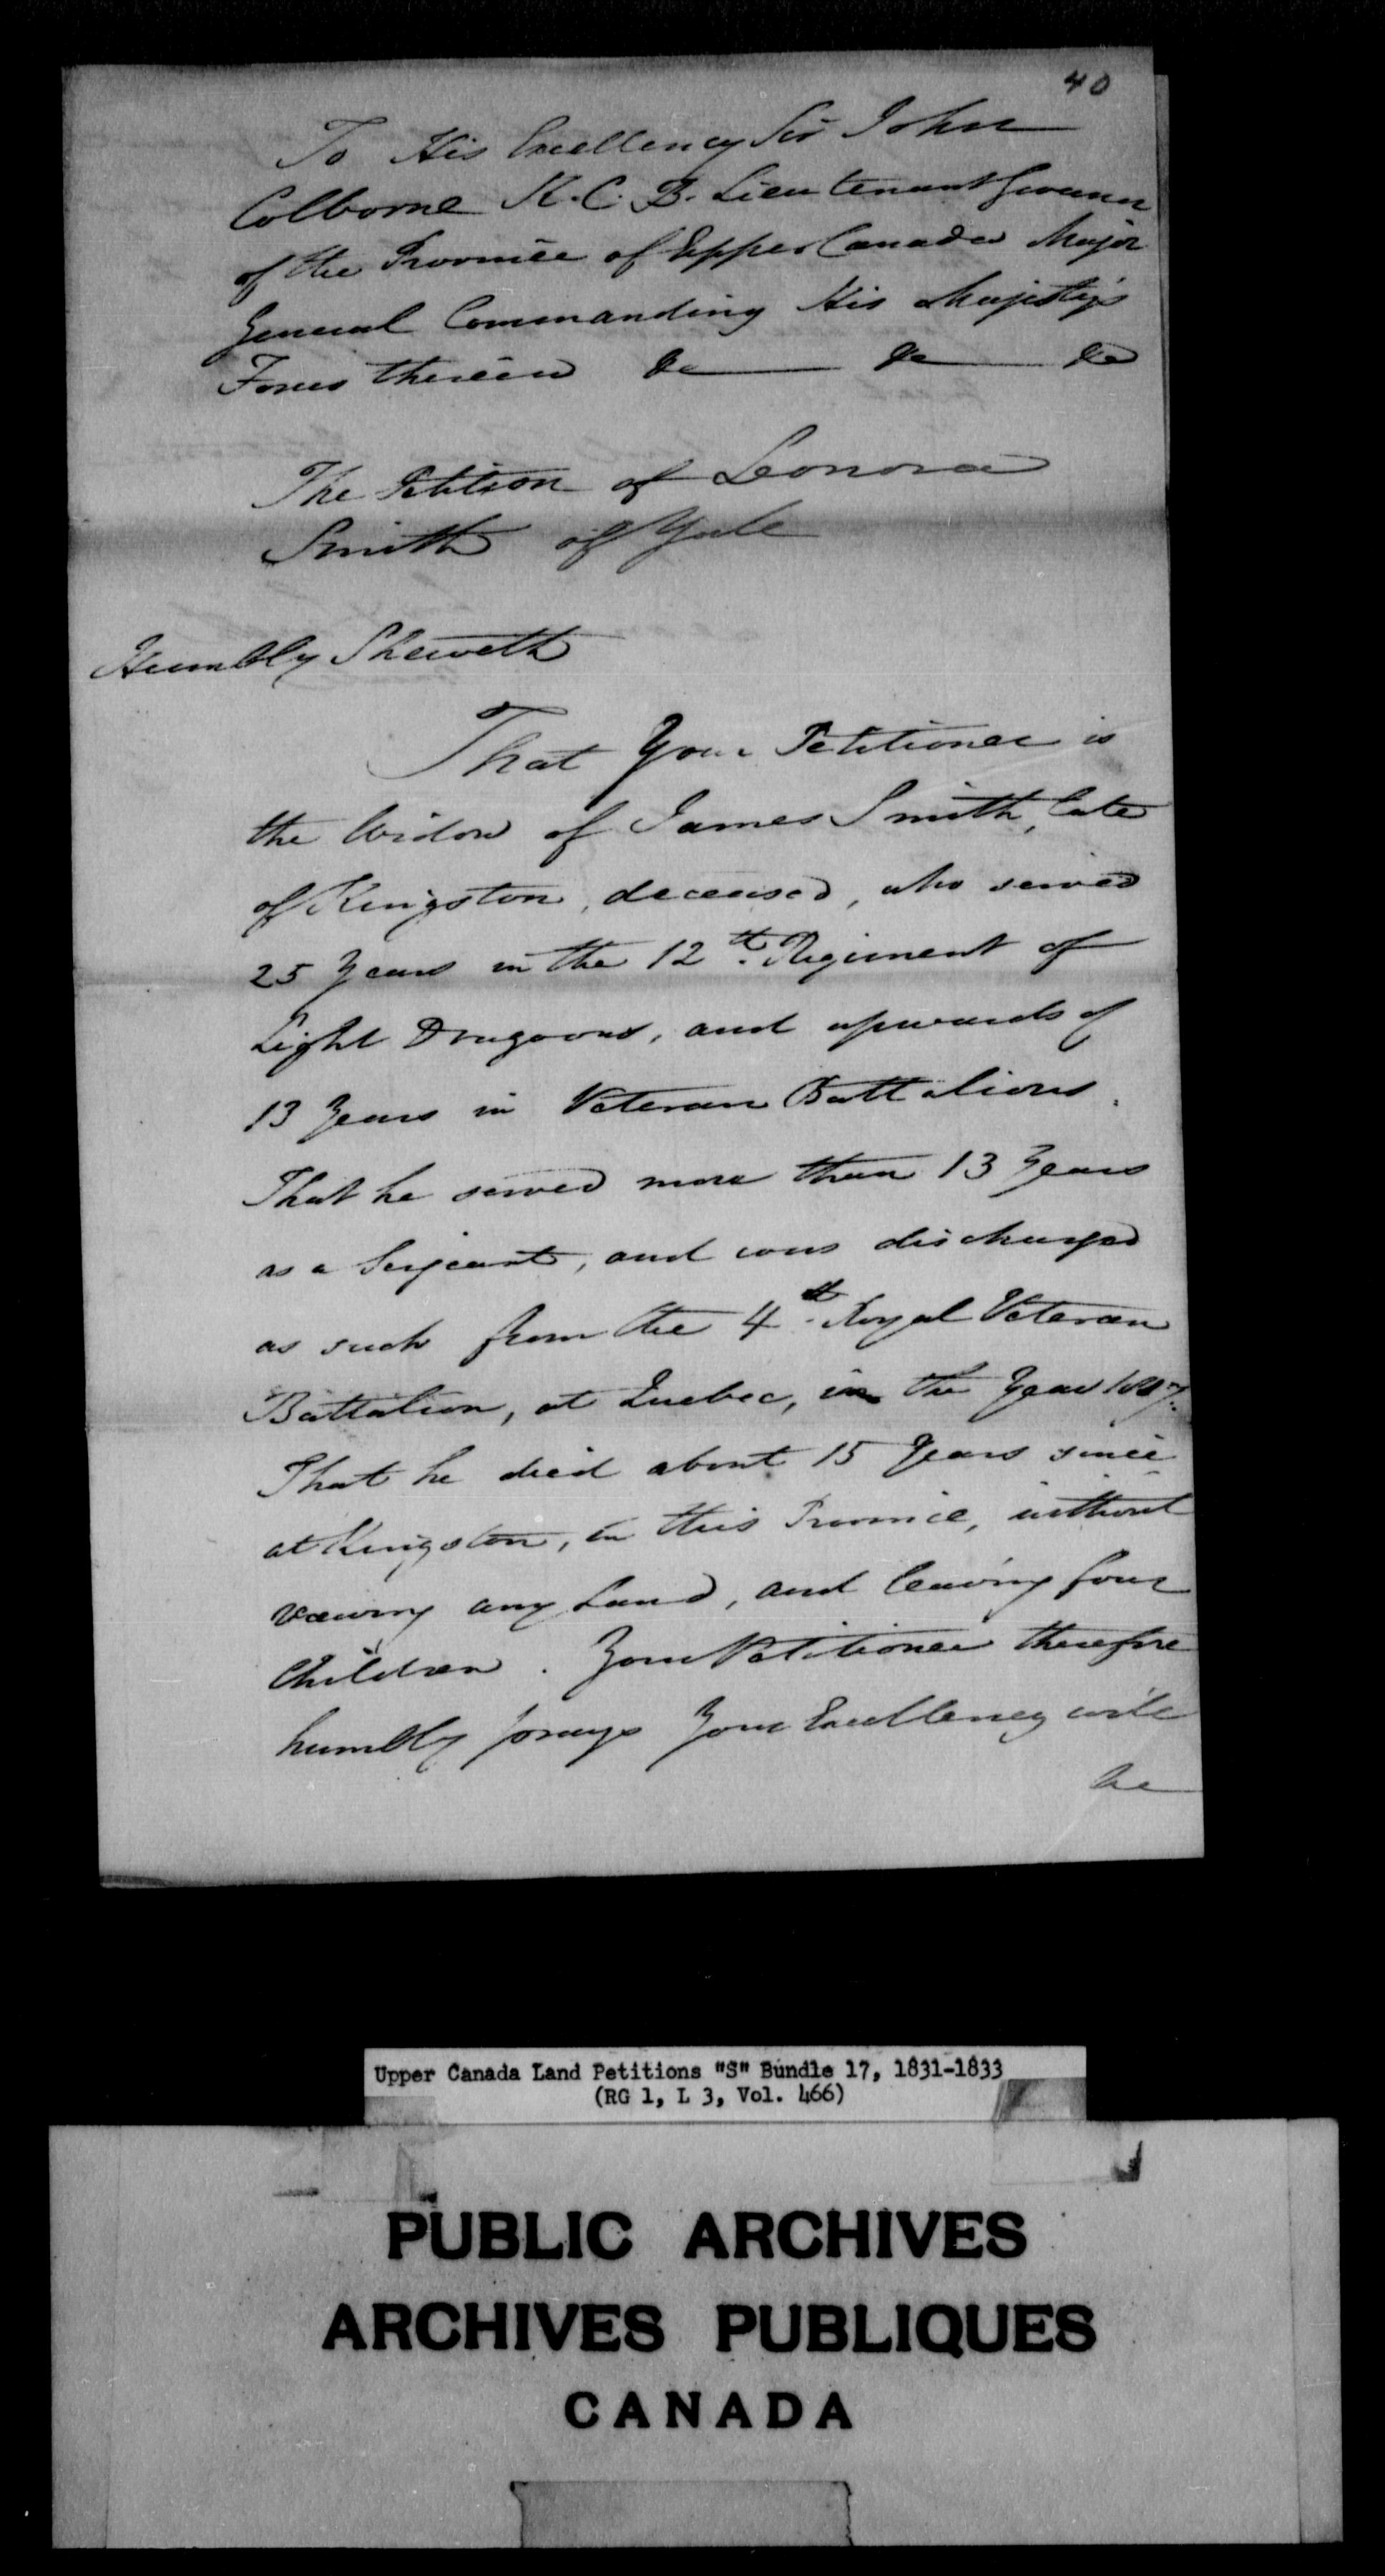 40
To His Excellency Sir John
Colborne K.C.B. Lieutenant Governor
of the Province of Upper Canada Major
General Commanding His Majesty's
Forces therein &c &c &c
The Petition of Leonora
Smith of
Humbly Sheweth
That Your Petitioner is
the Widow of James Smith, late
of Kingston, deceased, who served
25 Years in the 12th Regiment of
Light Dragoons, and upwards of
13 Years in Veteran Battalions.
That he served more than 13 Years
as a Serjeant, and was discharged
as such from the 4th Royal Veteran
Battalion, at Quebec, in the Year
That he died about 15 Years since
at Kingston, in this Province, without
any Land, and leaving four
Children. Your Petitioner therefore
humbly prays Your Excellency will
be
Upper Canada Land Petitions "S" Bundle 17, 1831-1833
(RG 1, L 3, Vol. 466)
PUBLIC ARCHIVES
ARCHIVES PUBLIQUES
CANADA